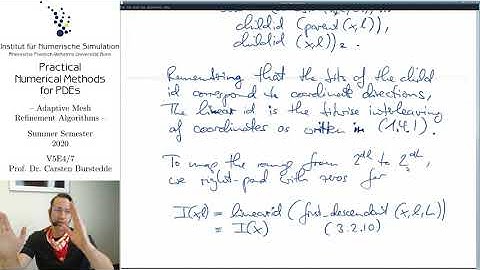 Institut für Numerische Simulation
Rheinische Friedrich-Wilhelms-Universität Bonn
Practical
Numerical Methods
for PDEs
– Adaptive Mesh
Refinement Algorithms –
Summer Semester
2020
V5E4/7
Prof. Dr. Carsten Burstedde
childid (parent(x,l)),
childid (x,l))₂.
Remembering that the bits of the child
id correspond to coordinate directions,
The linear id is the bitwise interleaving
of coordinates as written in (1.4.1).
To map the range from 2^dl to 2^dL,
we right-pad with zeros for
I(x,l) = linearid (first_descendant (x,l,L))
= I(x) (3.2.10)